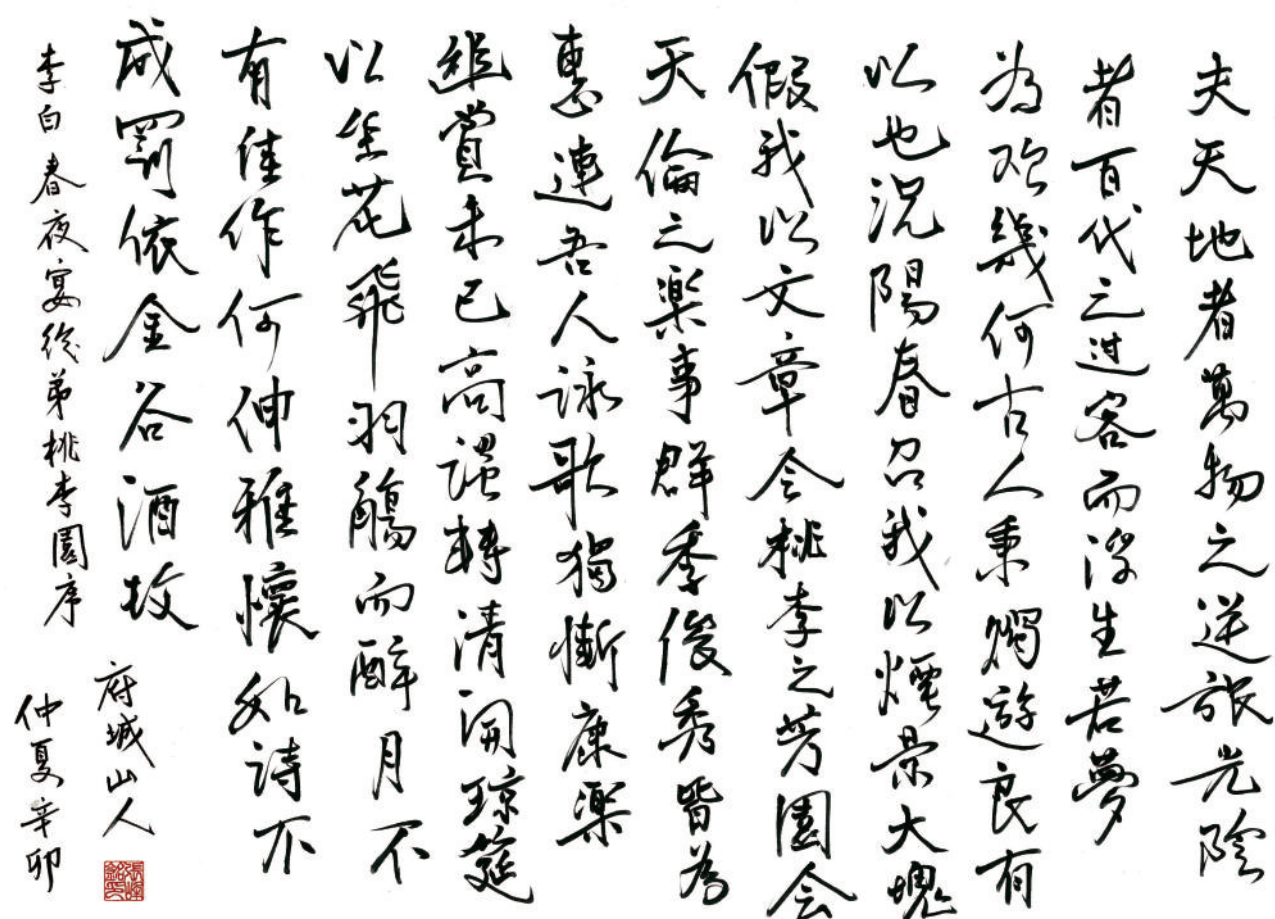 夫天地者萬物之逆旅光陰
者百代之过客而浮生若夢
為欢幾何古人秉燭遊良有
以也況陽春召我以煙景大塊
假我以文章会桃李之芳園会
天倫之楽事群季俊秀皆為
惠連吾人詠歌獨慚康楽
幽賞未已高談轉清開瓊筵
以坐花飛羽觴而醉月不
有佳作何伸雅懷如詩不
成罰依金谷酒故
李白春夜宴從弟桃李園序
府城山人
仲夏辛卯